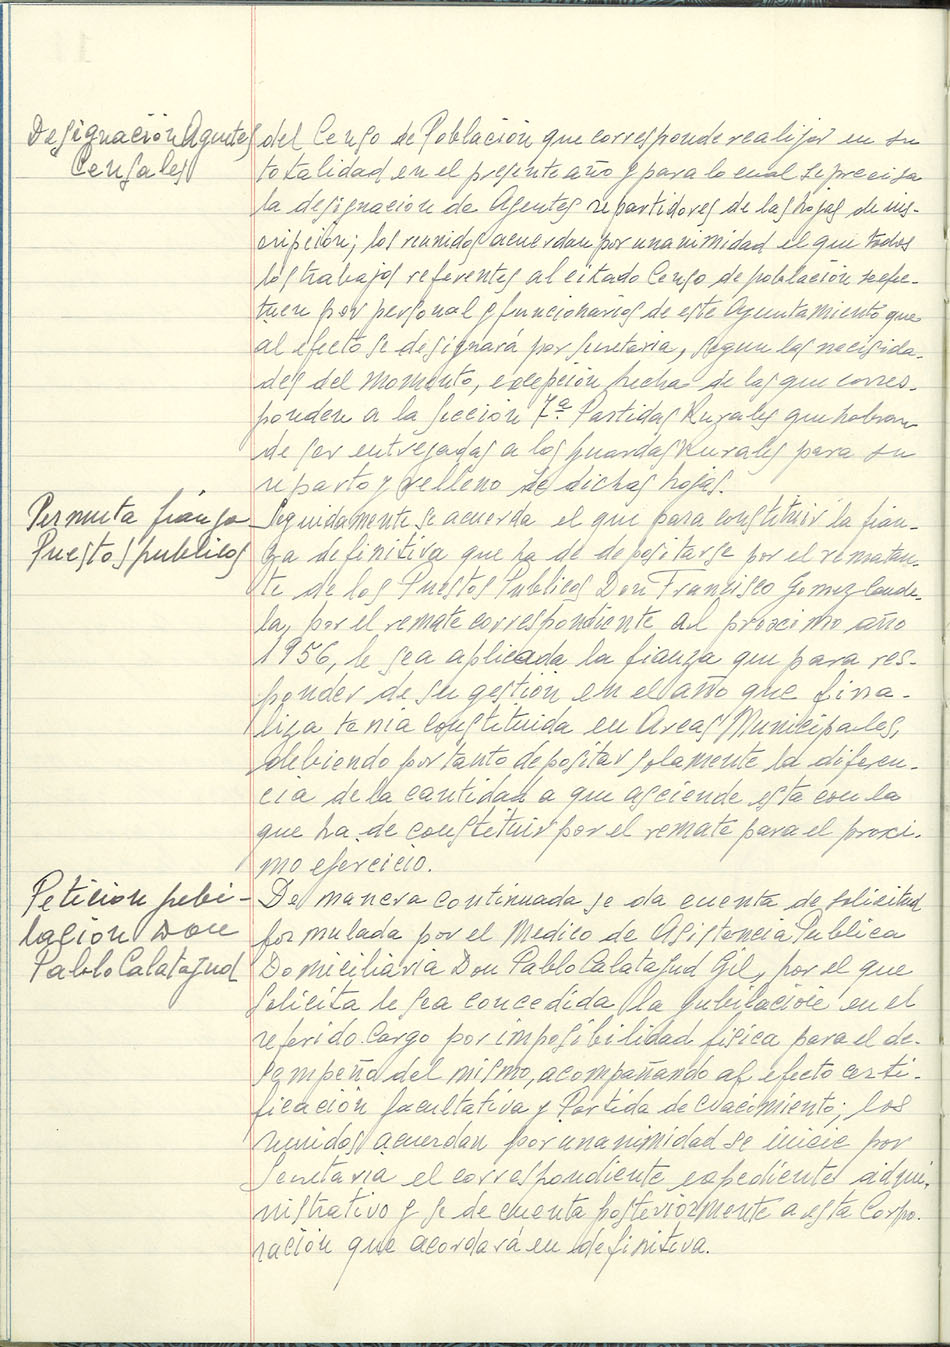 Designación Agentes
Censales
del Censo de Población que corresponde realizar en su
totalidad en el presente año y para lo cual se precisa
la designación de Agentes repartidores de las hojas de ins-
cripción; los reunidos acuerdan por unanimidad el que todos
los trabajos referentes al citado Censo de población se efec-
tuen por personal y funcionarios de este Ayuntamiento que
al efecto se designará por Secretaria, segun las necesida-
des del momento, excepción hecha de las que corres-
ponden a la Sección 7ª Partidas Rurales que habran
de ser entregadas a los guardas Rurales para su
reparto y relleno de dichas hojas.
Permuta fianza
Puestos publicos
Seguidamente se acuerda el que para constituir la fian-
za definitiva que ha de depositarse por el rematan-
te de los Puestos Publicos Don Francisco Gomez Cande-
la, por el remate correspondiente al proximo año
1956, le sea aplicada la fianza que para res-
ponder de su gestión en el año que fina-
liza tenia constituida en Arcas Municipales,
debiendo por tanto depositar solamente la diferen-
cia de la cantidad a que asciende esta con la
que ha de constituir por el remate para el proxi-
mo ejercicio.
Peticion jubi-
lación Don
Pablo Calatayud
De manera continuada se da cuenta de solicitud
formulada por el Medico de Asistencia Publica
Domiciliaria Don Pablo Calatayud Gil, por el que
solicita le sea concedida la jubilación en el
referido cargo por imposibilidad fisica para el de-
sempeño del mismo, acompañando al efecto certi-
ficación facultativa y Partida de Nacimiento; los
reunidos acuerdan por unanimidad se inicie por
Secretaria el correspondiente expediente admi-
nistrativo y se de cuenta posteriormente a esta Corpo-
ración que acordará en definitiva.